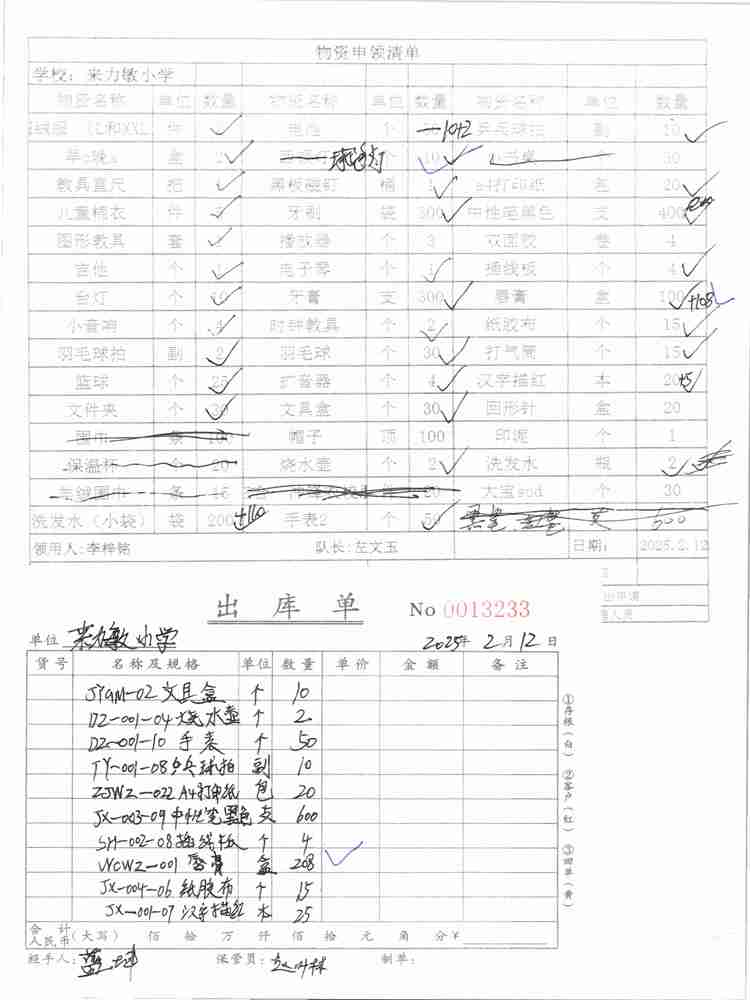 物资申领清单
学校：来力敏小学
物资名称 单位 数量 物资名称 单位 数量 物资名称 单位 数量
绒服（L和XXL 件 电池 个 10+2 乒乓球拍 副 10
盒 2 球 灯 10 30
教具直尺 把 黑板磁钉 桶 1 a4打印纸 包 20
儿童棉衣 件 牙刷 袋 300 中性笔黑色 支 400
图形教具 套 播放器 个 3 双面胶 卷 4
吉他 个 电子琴 个 1 插线板 个 4
台灯 个 牙膏 支 300 唇膏 盒 100 +108
小音响 个 4 时钟教具 个 2 纸胶布 个 15
羽毛球拍 副 2 羽毛球 个 30 打气筒 个 15
篮球 个 25 扩音器 个 4 汉字描红 本 20 +5
文件夹 个 30 文具盒 个 30 回形针 盒 20
围巾 条 100 帽子 顶 100 印泥 个 1
保温杯 个 20 烧水壶 个 2 洗发水 瓶 2
羊绒围巾 条 15 大宝sod 个 30
洗发水（小袋） 袋 200 +110 手表2 个 50 支 600
领用人：李梓铭 队长：左文玉 日期： 2025.2.12
出库单 No 0013233
单位 来力敏小学 2025年 2月 12日
货号 名称及规格 单位 数量 单价 金额 备注
JYGM-02 文具盒 个 10
DZ-001-04 烧水壶 个 2
DZ-001-10 手表 个 50
TY-001-08 乒乓球拍 副 10
ZJWZ-022 A4打印纸 包 20
JX-003-09 中性笔黑色 支 600
SH-002-08 插线板 个 4
WCWZ-001 唇膏 盒 208
JX-004-06 纸胶布 个 15
JX-001-07 汉字描红 本 25
合计人民币（大写） 佰 拾 万 仟 佰 拾 元 角 分 ¥
经手人： 保管员： 制单：
①存根（白） ②客户（红） ③回单（黄）